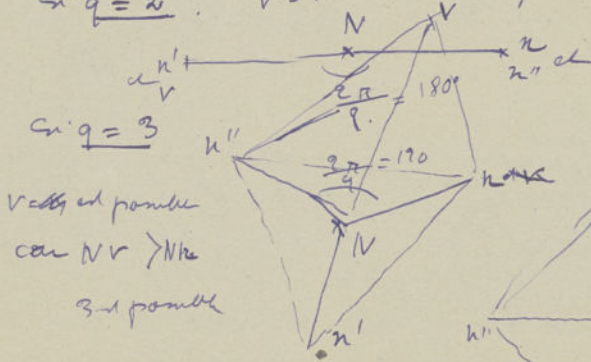 Si q = 2 . V
N V
n' n
V n''
2π/q = 180°
Si q = 3
n'' 2π/q = 120 n
V est possible
car NV > Nn
N
3 est possible
n'
n''